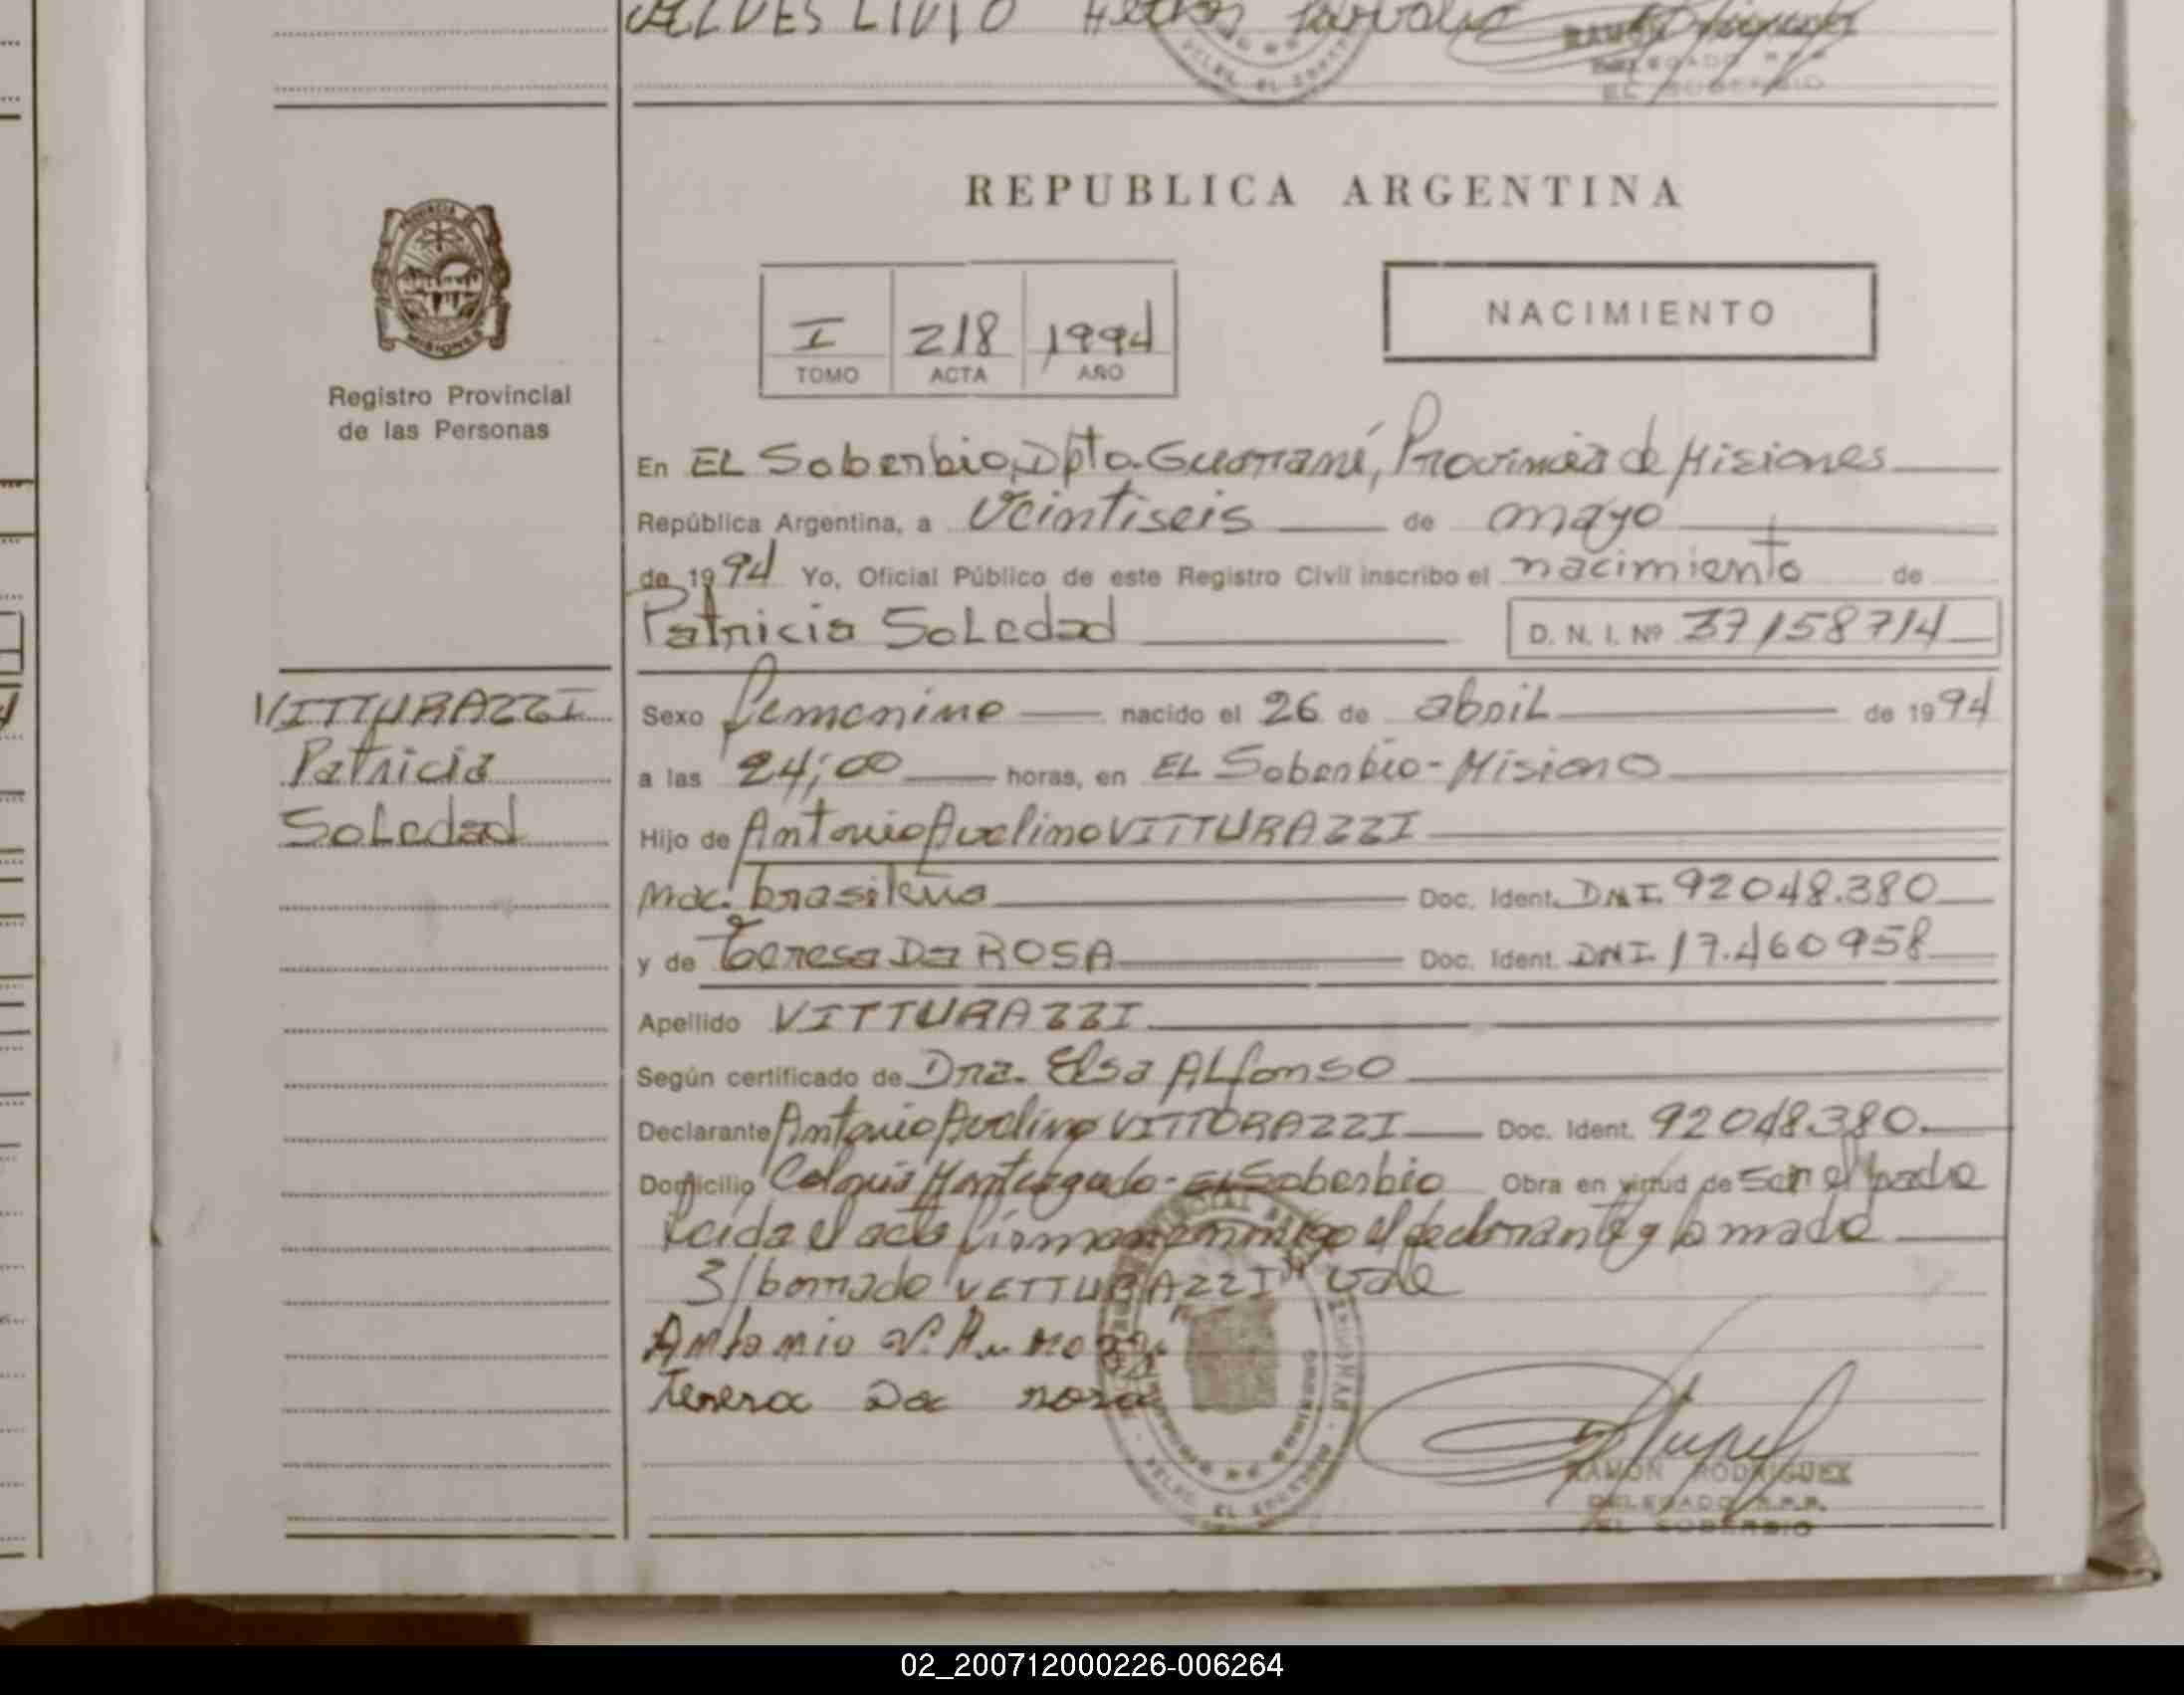 REPUBLICA ARGENTINA
PROVINCIA DE
MISIONES
Registro Provincial
de las Personas
NACIMIENTO
I 218 1994
TOMO ACTA AÑO
En EL Soberbio, Dpto. Guaraní, Provincia de Misiones
República Argentina, a Veintiseis de mayo
de 1994 Yo, Oficial Público de este Registro Civil inscribo el nacimiento de
Patricia Soledad D. N. I. Nº 37158714
VITTURAZZI
Patricia
Soledad
Sexo femenino nacido el 26 de abril de 1994
a las 24,00 horas, en EL Soberbio - Misiones
Hijo de Antonio Avelino VITTURAZZI
Nac. brasileña Doc. Ident. DNI. 92048.380
y de Teresa Da ROSA Doc. Ident. DNI. 17.460958
Apellido VITTURAZZI
Según certificado de Dra. Elsa ALfonso
Declarante Antonio Avelino VITTORAZZI Doc. Ident. 92048.380.
Domicilio Colonia Monteagudo - EL Soberbio Obra en virtud de ser el padre
Leida el acta firman conmigo el declarante y la madre
S/borrado "VITTURAZZI" vale
Antonio
Teresa Da rosa
RAMON RODRIGUEZ
DELEGADO R.P.P.
EL SOBERBIO
02_200712000226-006264